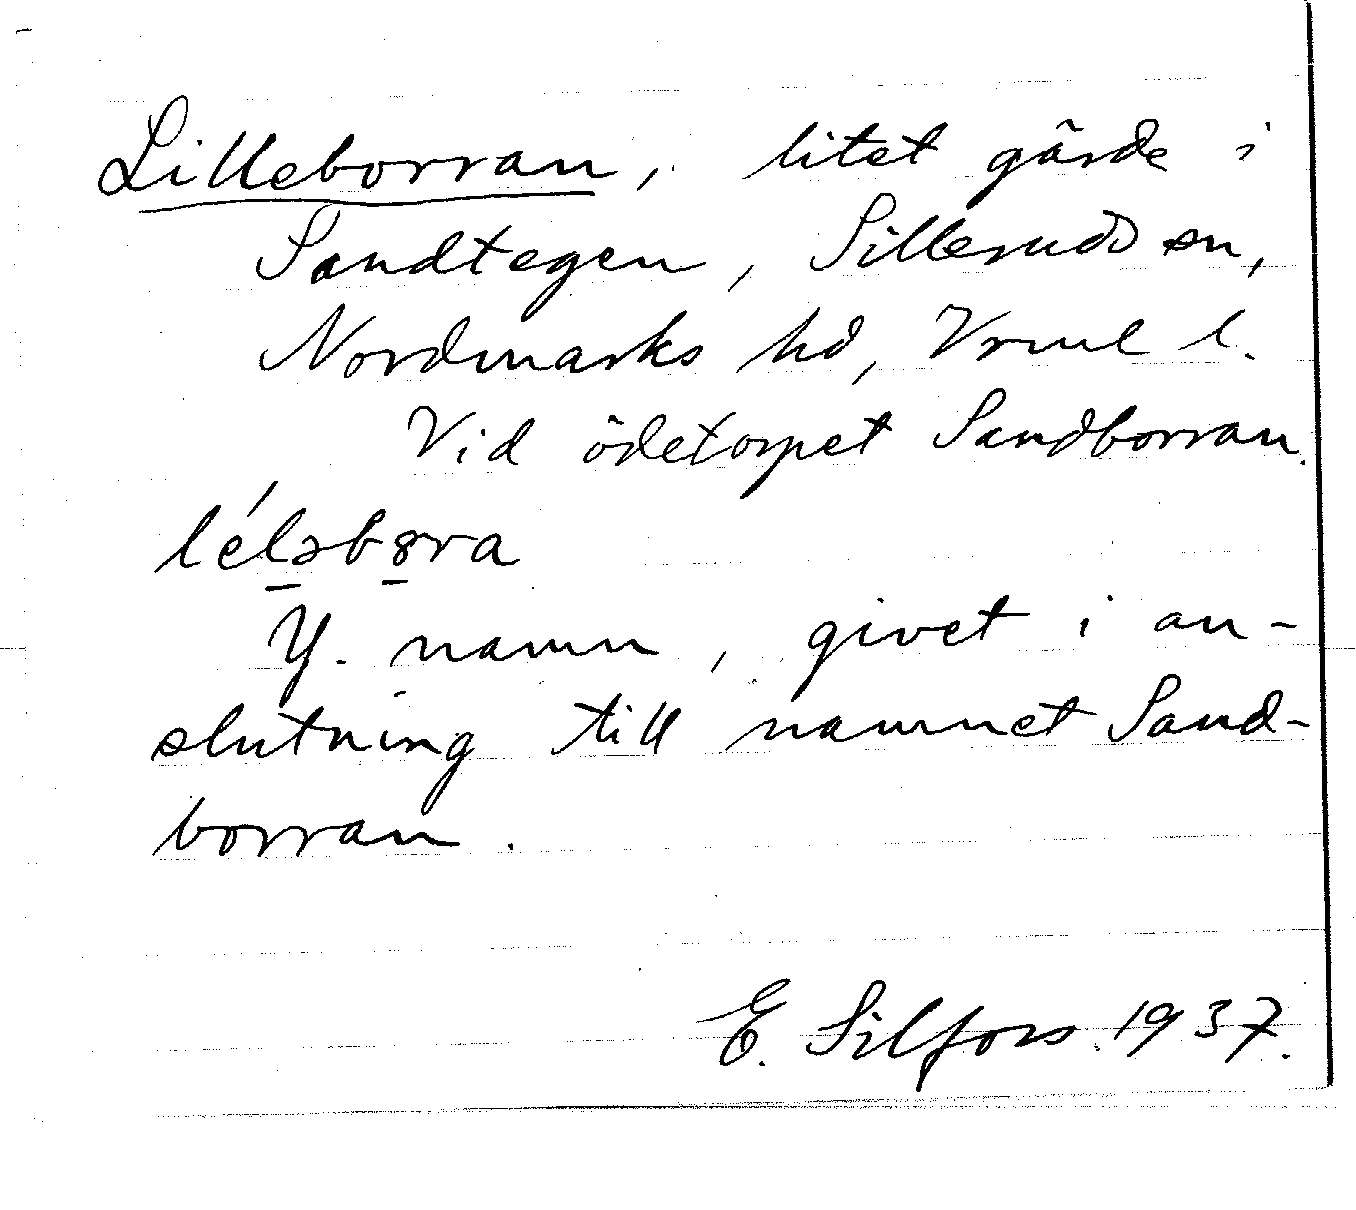 Lilleborran, litet gärde i
Sandtegen, Silleruds sn,
Nordmarks hd, Vrml l.
Vid ödetorpet Sandborran.
lélǝbȣra
Y. namn, givet i an-
slutning till namnet Sand-
borran.
E. Silfors 1937.